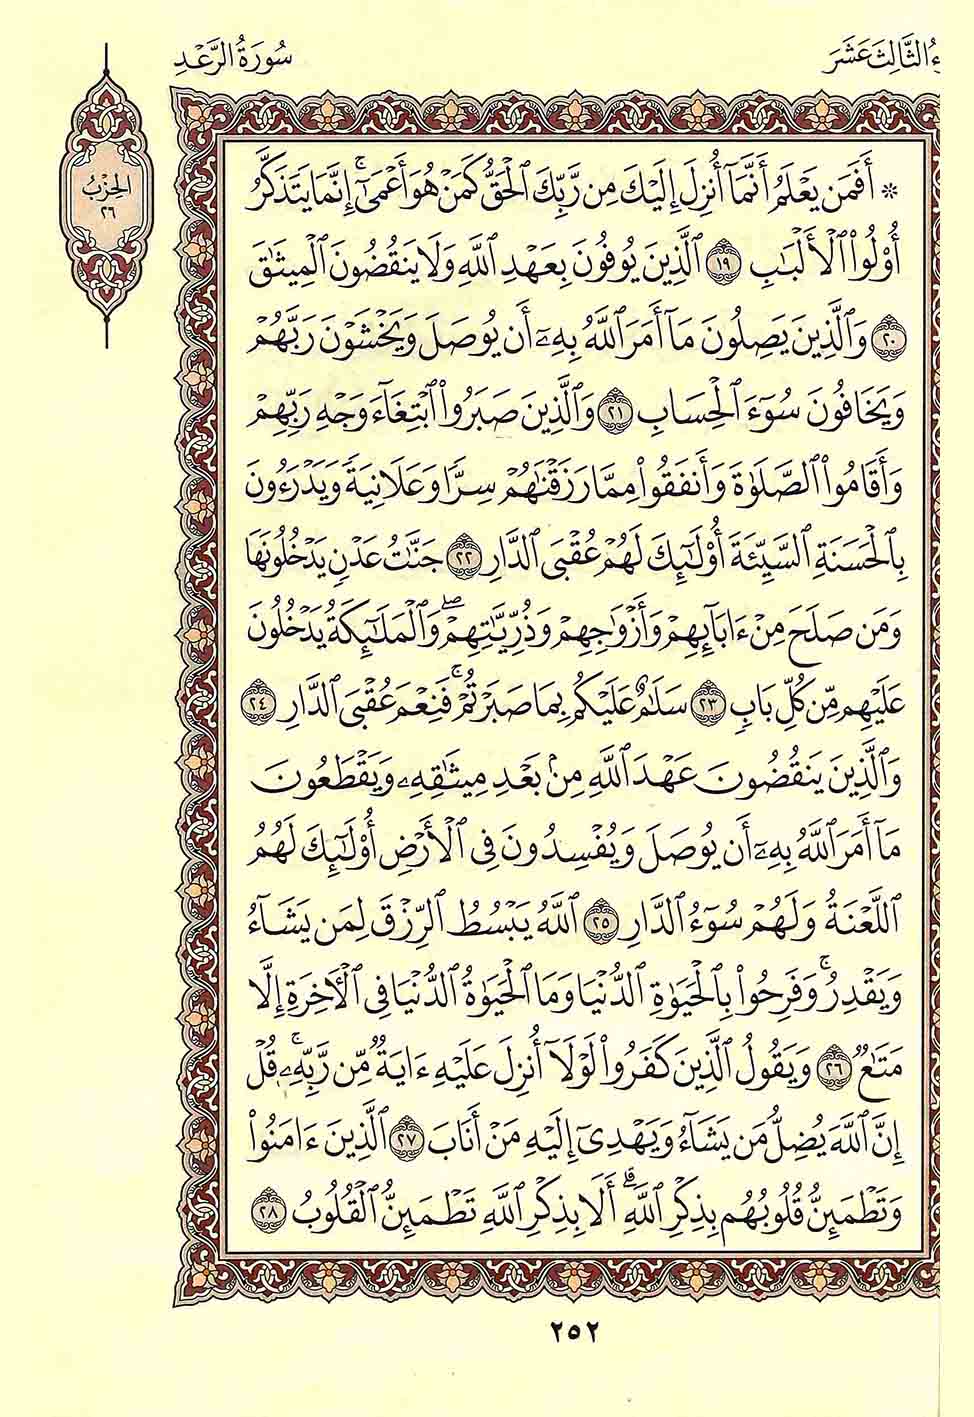 ءُ الثَّالِثَ عَشَرَ
سُورَةُ الرَّعْدِ
الحِزْبُ
٢٦
۞ أَفَمَن يَعْلَمُ أَنَّمَآ أُنزِلَ إِلَيْكَ مِن رَّبِّكَ ٱلْحَقُّ كَمَنْ هُوَ أَعْمَىٰٓ ۚ إِنَّمَا يَتَذَكَّرُ
أُو۟لُوا۟ ٱلْأَلْبَٰبِ ١٩ ٱلَّذِينَ يُوفُونَ بِعَهْدِ ٱللَّهِ وَلَا يَنقُضُونَ ٱلْمِيثَٰقَ
٢٠ وَٱلَّذِينَ يَصِلُونَ مَآ أَمَرَ ٱللَّهُ بِهِۦٓ أَن يُوصَلَ وَيَخْشَوْنَ رَبَّهُمْ
وَيَخَافُونَ سُوٓءَ ٱلْحِسَابِ ٢١ وَٱلَّذِينَ صَبَرُوا۟ ٱبْتِغَآءَ وَجْهِ رَبِّهِمْ
وَأَقَامُوا۟ ٱلصَّلَوٰةَ وَأَنفَقُوا۟ مِمَّا رَزَقْنَٰهُمْ سِرًّا وَعَلَانِيَةً وَيَدْرَءُونَ
بِٱلْحَسَنَةِ ٱلسَّيِّئَةَ أُو۟لَٰٓئِكَ لَهُمْ عُقْبَى ٱلدَّارِ ٢٢ جَنَّٰتُ عَدْنٍ يَدْخُلُونَهَا
وَمَن صَلَحَ مِنْ ءَابَآئِهِمْ وَأَزْوَٰجِهِمْ وَذُرِّيَّٰتِهِمْ ۖ وَٱلْمَلَٰٓئِكَةُ يَدْخُلُونَ
عَلَيْهِم مِّن كُلِّ بَابٍ ٢٣ سَلَٰمٌ عَلَيْكُم بِمَا صَبَرْتُمْ ۚ فَنِعْمَ عُقْبَى ٱلدَّارِ ٢٤
وَٱلَّذِينَ يَنقُضُونَ عَهْدَ ٱللَّهِ مِنۢ بَعْدِ مِيثَٰقِهِۦ وَيَقْطَعُونَ
مَآ أَمَرَ ٱللَّهُ بِهِۦٓ أَن يُوصَلَ وَيُفْسِدُونَ فِى ٱلْأَرْضِ أُو۟لَٰٓئِكَ لَهُمُ
ٱللَّعْنَةُ وَلَهُمْ سُوٓءُ ٱلدَّارِ ٢٥ ٱللَّهُ يَبْسُطُ ٱلرِّزْقَ لِمَن يَشَآءُ
وَيَقْدِرُ ۚ وَفَرِحُوا۟ بِٱلْحَيَوٰةِ ٱلدُّنْيَا وَمَا ٱلْحَيَوٰةُ ٱلدُّنْيَا فِى ٱلْءَاخِرَةِ إِلَّا
مَتَٰعٌ ٢٦ وَيَقُولُ ٱلَّذِينَ كَفَرُوا۟ لَوْلَآ أُنزِلَ عَلَيْهِ ءَايَةٌ مِّن رَّبِّهِۦ ۗ قُلْ
إِنَّ ٱللَّهَ يُضِلُّ مَن يَشَآءُ وَيَهْدِىٓ إِلَيْهِ مَنْ أَنَابَ ٢٧ ٱلَّذِينَ ءَامَنُوا۟
وَتَطْمَئِنُّ قُلُوبُهُم بِذِكْرِ ٱللَّهِ ۗ أَلَا بِذِكْرِ ٱللَّهِ تَطْمَئِنُّ ٱلْقُلُوبُ ٢٨
٢٥٢